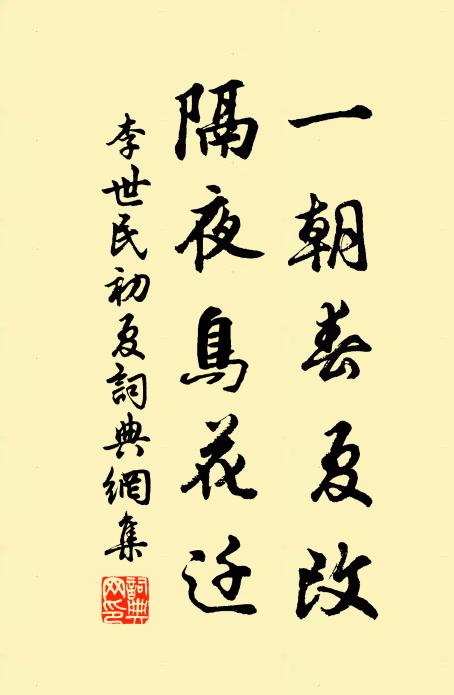 一朝春夏改
隔夜鳥花迁
李世民初夏詞典網集